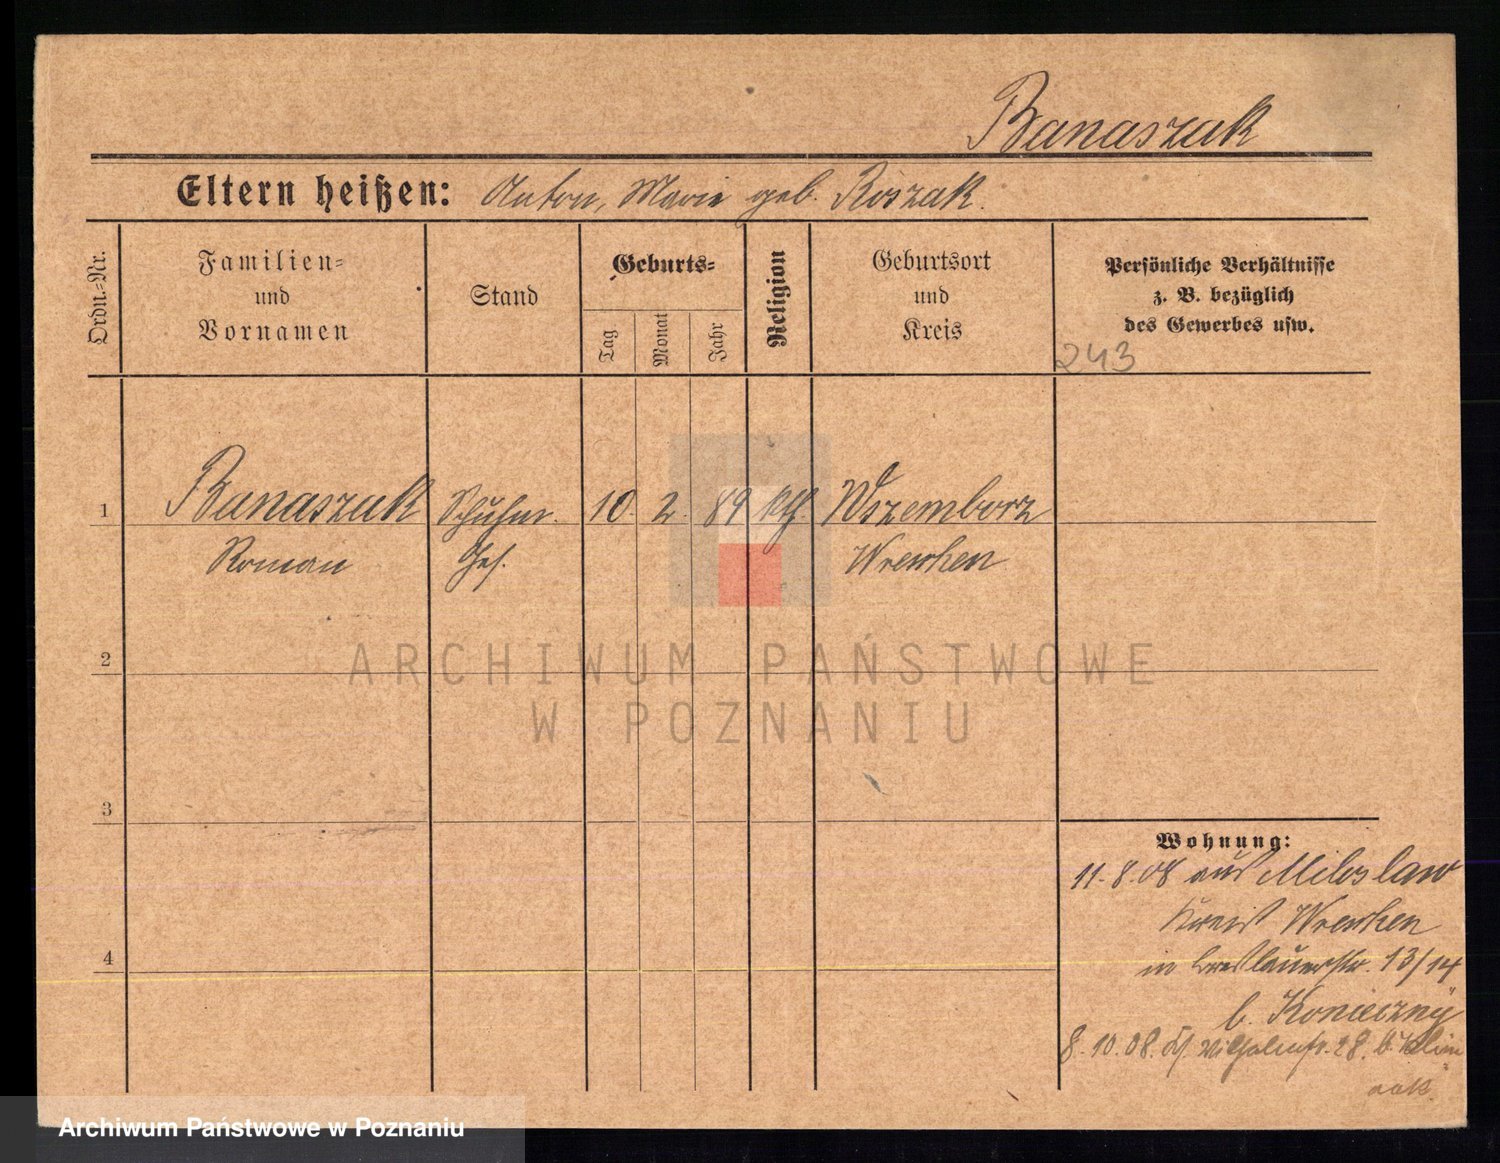 Banaszak
Eltern heißen: Anton, Marie geb. Roszak.
Ordn.-Nr.
Familien-
und
Vornamen
Stand
Geburts-
Tag
Monat
Jahr
Religion
Geburtsort
und
Kreis
Persönliche Verhältnisse
z. B. bezüglich
des Gewerbes usw.
243
1 Banaszak Schuhm. 10. 2. 89 kth. Wszemborz
Roman Ges. Wreschen
2
3
4
Wohnung:
11.8.08 aus Miloslaw
Kreis Wreschen
in Breslauerstr. 13/14
b. Konieczny
8.10.08. Wilhelmstr. 28. b.
ARCHIWUM PAŃSTWOWE
W POZNANIU
Archiwum Państwowe w Poznaniu